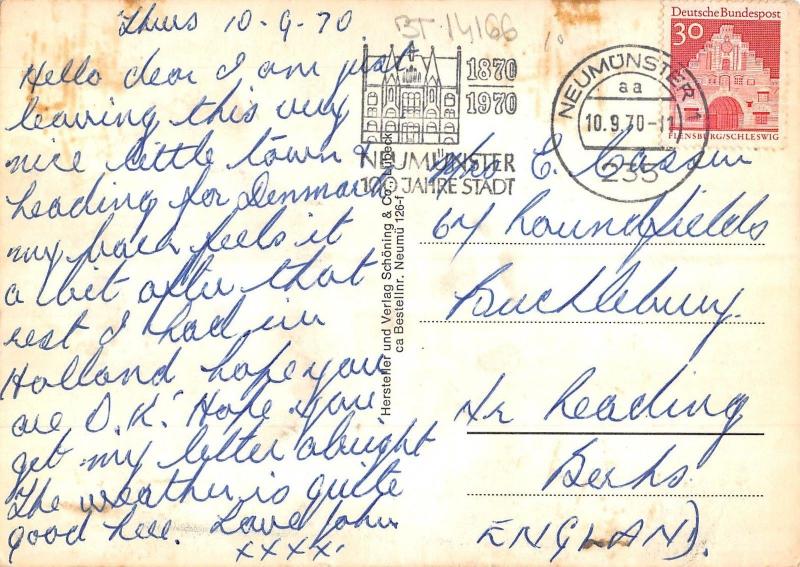 Thurs 10-9-70
Hello dear I am just
leaving this very
nice little town &
heading for Denmark
my back feels it
a bit after that
rest I had in
Holland hope you
are O.K. Hope you
get my letter alright
The weather is quite
good here. Love John
xxxx.
BT-14166
1870
1970
NEUMÜNSTER
100 JAHRE STADT
NEUMÜNSTER 1
aa
10.9.70-11
235
Deutsche Bundespost
30
FLENSBURG/SCHLESWIG
Hersteller und Verlag Schöning & Co., Lübeck
ca Bestellnr. Neumü 126-f
Mrs E. Cassin
64 Roundfields
Bucklebury.
Nr Reading
Berks.
ENGLAND.